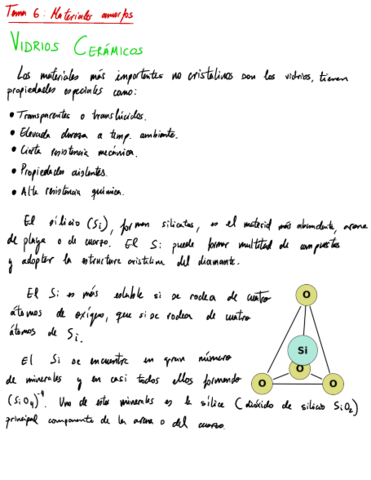 Tema 6: Materiales amorfos
VIDRIOS CERÁMICOS
Los materiales más importantes no cristalinos son los vidrios, tienen
propiedades especiales como:
• Transparentes o translúcidos.
• Elevada dureza a temp. ambiente.
• Cierta resistencia mecánica.
• Propiedades aislantes.
• Alta resistencia química.
El silicio (Si), forman silicatos, es el material más abundante, arena
de playa o de cuarzo. El Si puede formar multitud de compuestos
y adoptar la estructura cristalina del diamante.
El Si es más estable si se rodea de cuatro
átomos de oxígeno, que si se rodea de cuatro
átomos de Si.
El Si se encuentra en gran número
de minerales y en casi todos ellos formando
(SiO4)-4. Uno de estos minerales es la sílice (dióxido de silicio SiO2)
principal componente de la arena o del cuarzo.
O
Si
O
O
O